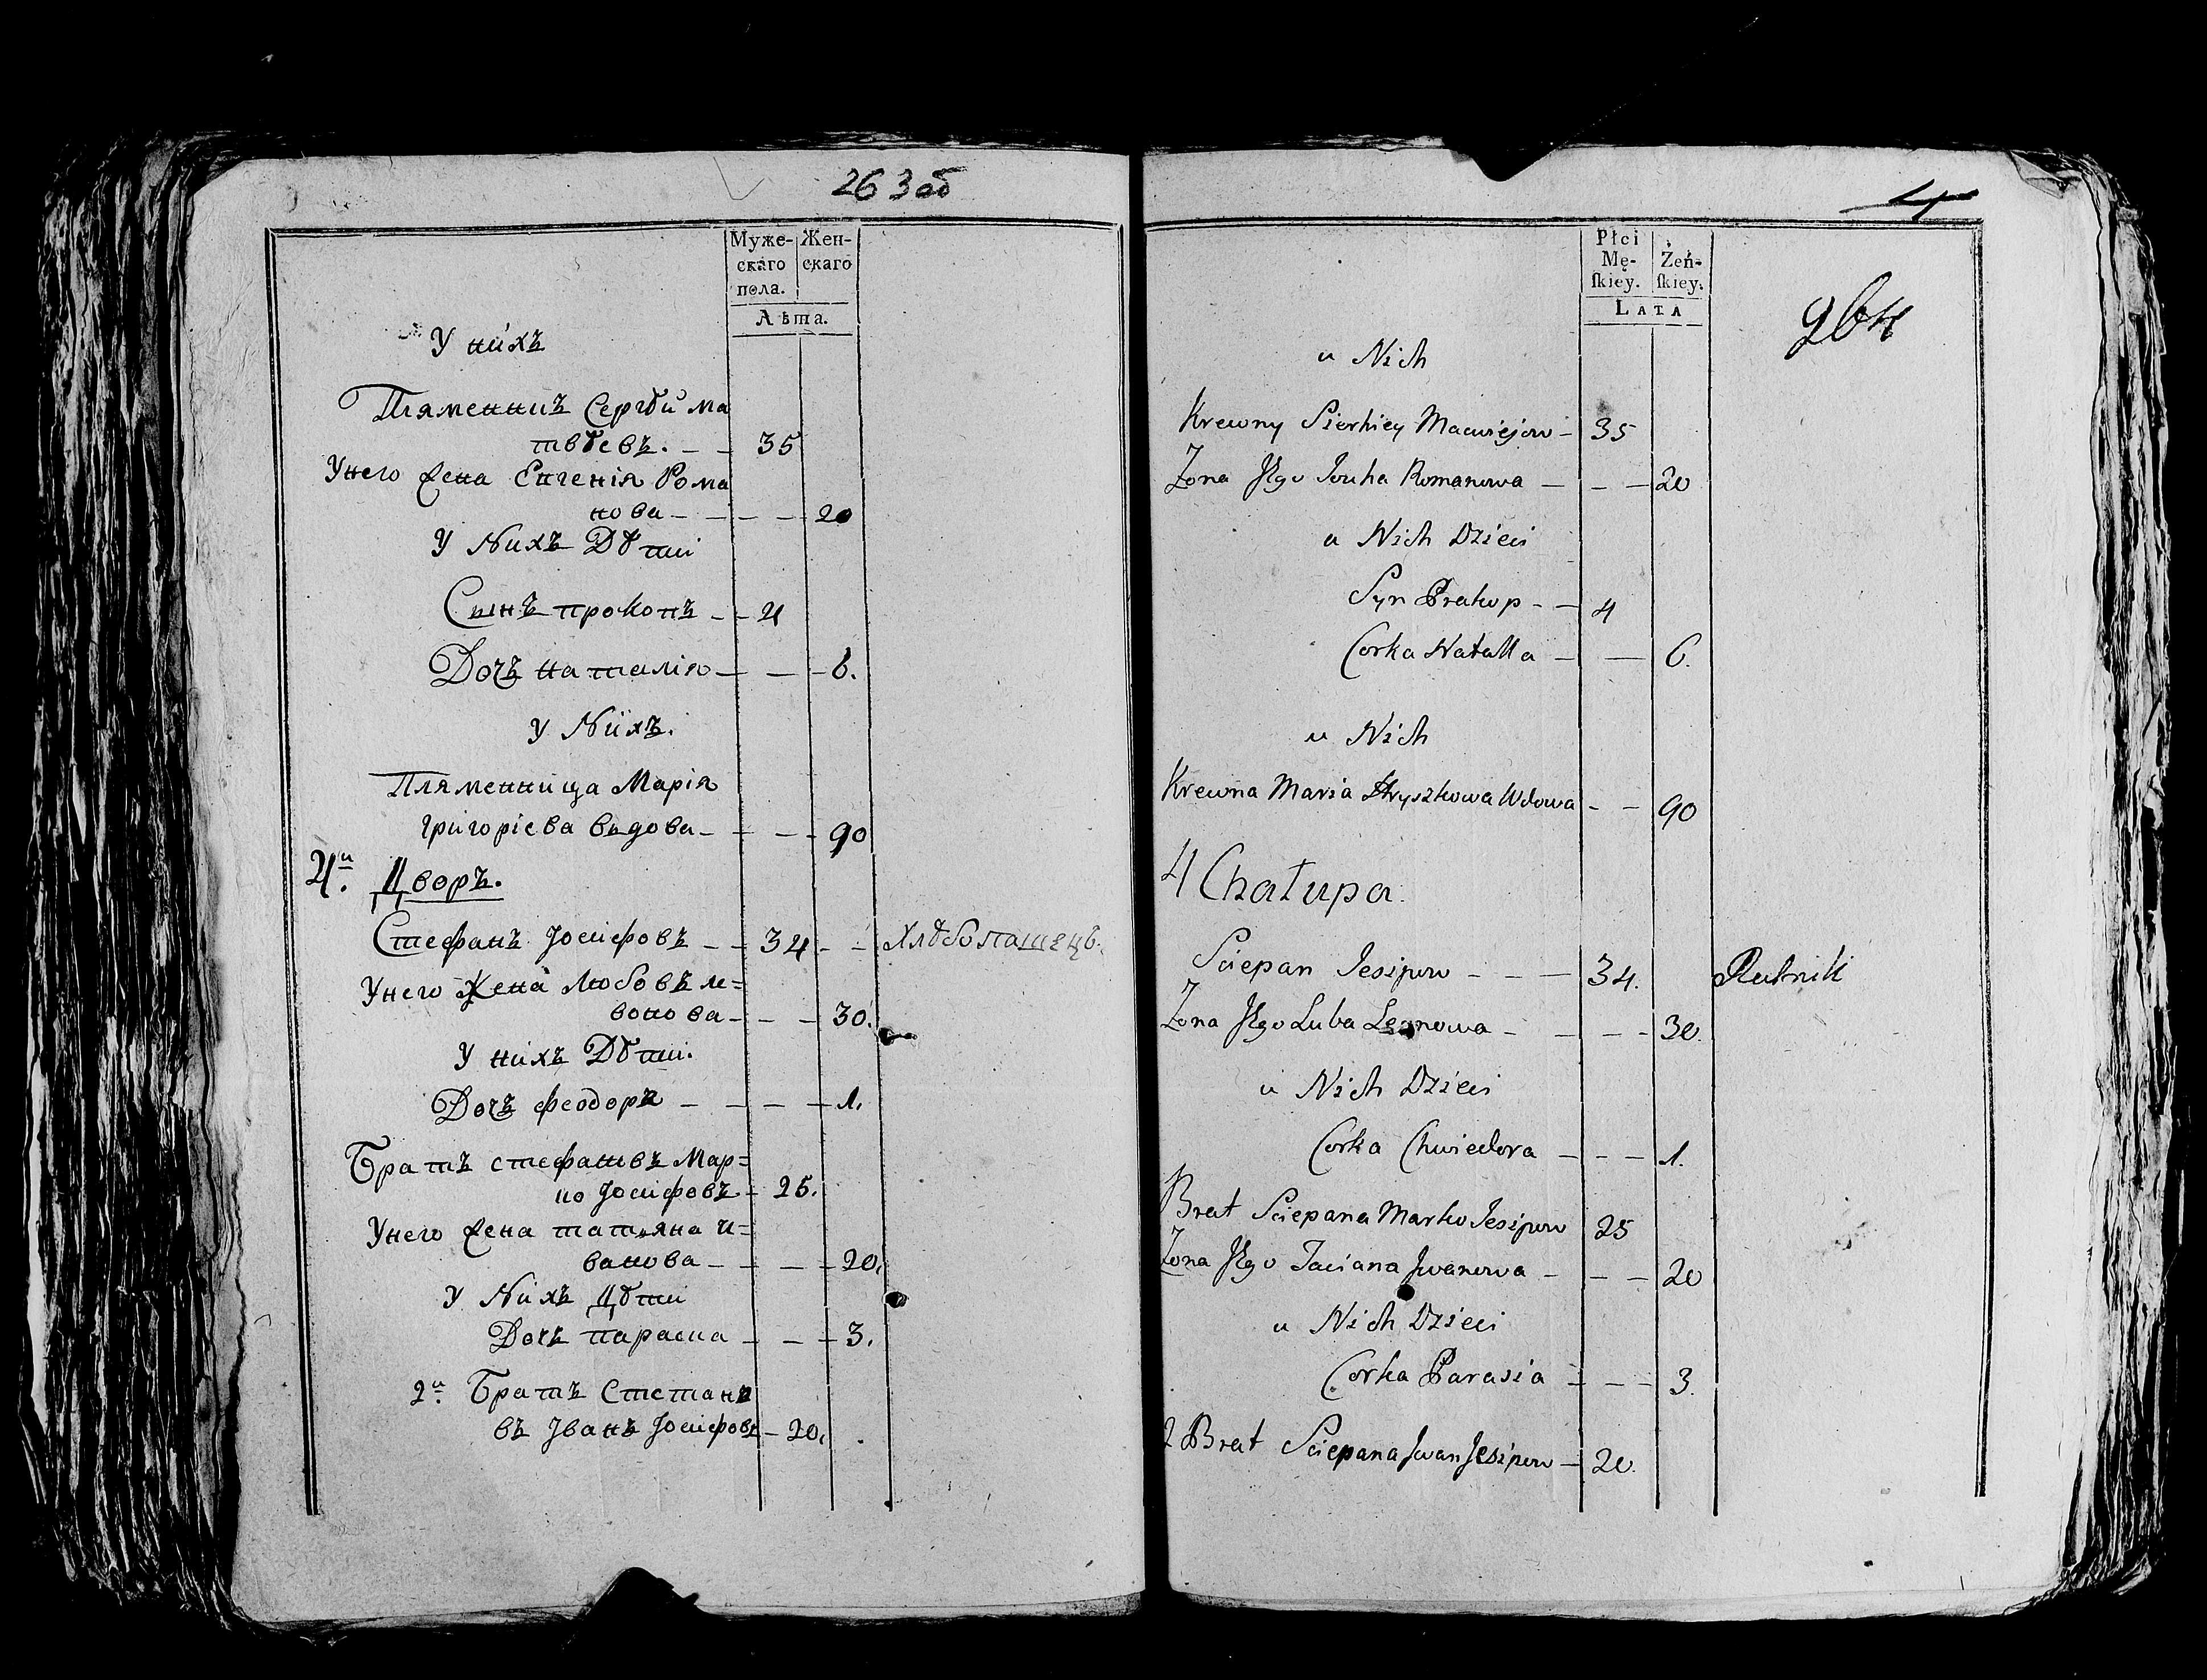 263 об
Муже-
скаго
пола.
Жен-
скаго
Лѣта.
У нихъ
Пляменникъ Сергѣй Ма
твѣевъ. — — 35
У него жена Евгенія Рома
нова — — — — 20
У Нихъ Дѣти
Сынъ прокопъ — — 4
Дочъ наталія — — — 6.
У Нихъ.
Пляменница Марія
григоріева вдова — — — — 90
4й. Дворъ.
Стефанъ Іосифовъ — — 34 — — Хлѣбопашецъ.
У него Жена Любовъ ле=
вонова — — — 30.
У нихъ Дѣти.
Дочъ феодора — — — — 1.
Братъ стефановъ Мар=
ко Іосифовъ — 25.
У него жена татьяна и=
ванова — — — — 20.
У Нихъ Дѣти
Дочъ параска — — — 3.
2й Братъ Степано
въ Іванъ Іосифовъ — 20.
4
Płci
Mę-
ſkiey.
Żeń-
ſkiey.
LATA
264
u Nich
Krewny Sierhiey Maciejow — 35
Zona Jego Jouha Romanowa — — — 20
u Nich Dzieci
Syn Prakop — — 4
Corka Natalla — — 6.
u Nich
Krewna Maria Hryszkowa Wdowa — — 90
4 Chałupa.
Sciepan Jesipow — — — 34. Rolnik
Zona Jego Luba Leonowa — — — — 30.
u Nich Dzieci
Corka Chwiedora — — — 1.
Brat Sciepana Marko Jesipow 25
Zona Jego Taciana Jwanowa — — — 20
u Nich Dzieci
Corka Parasia — — — 3.
2 Brat Sciepana Jwan Jesipow — 20.